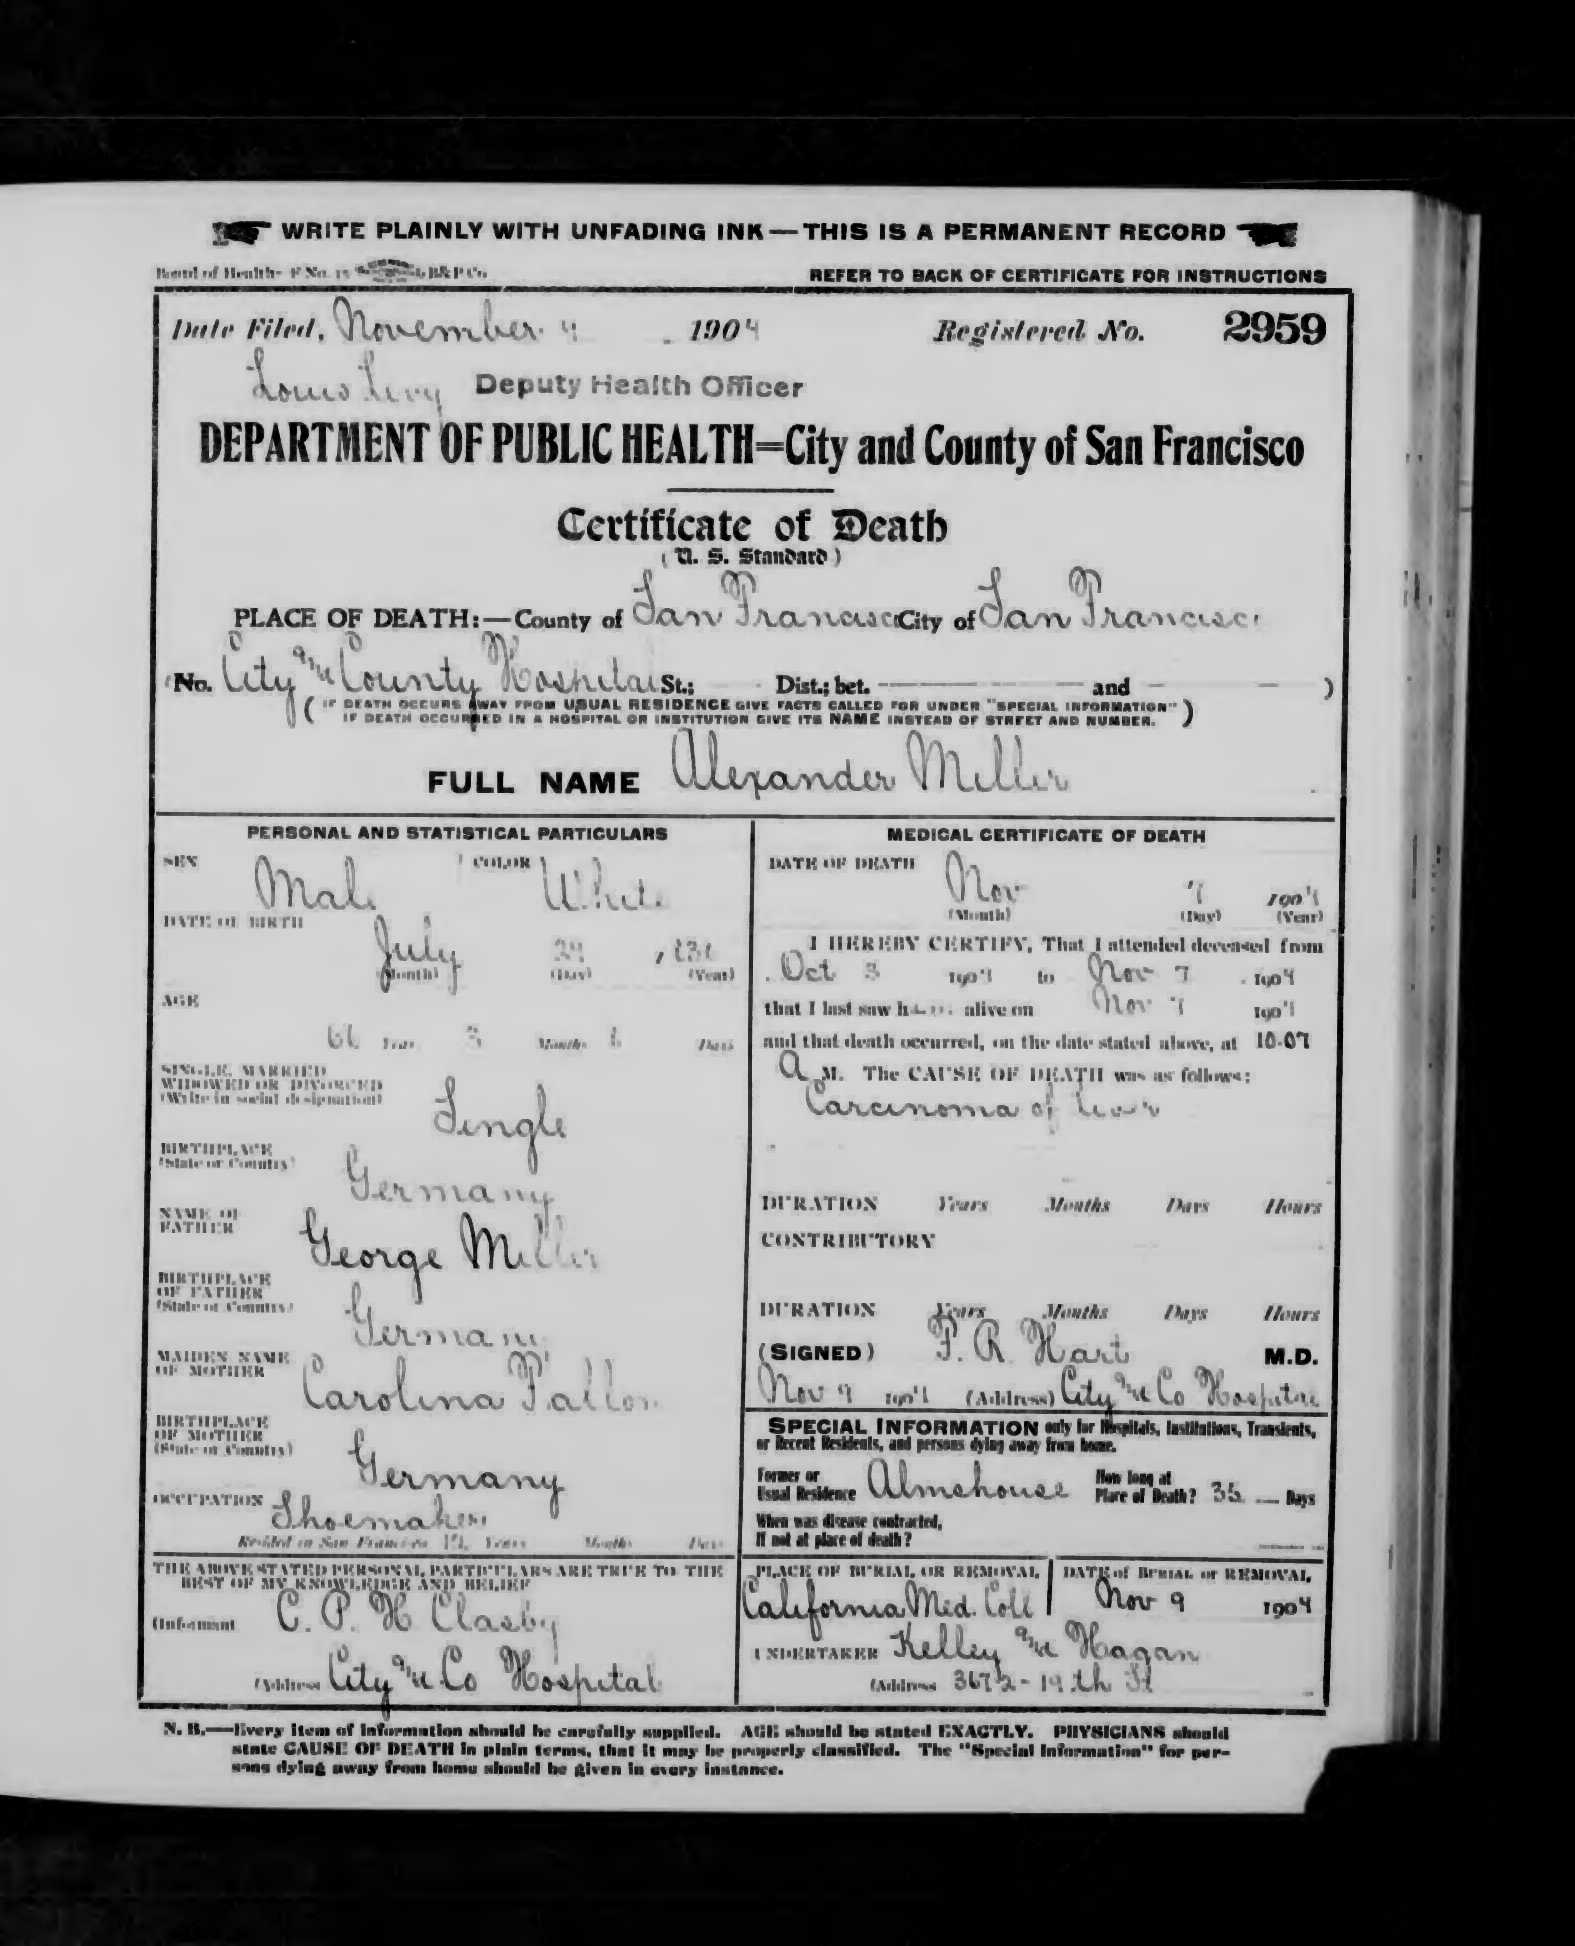 WRITE PLAINLY WITH UNFADING INK—THIS IS A PERMANENT RECORD
Board of Health—F No. 15 B&P Co.
REFER TO BACK OF CERTIFICATE FOR INSTRUCTIONS
Date Filed, November 9 1904 Registered No. 2959
Louis Levy Deputy Health Officer
DEPARTMENT OF PUBLIC HEALTH=City and County of San Francisco
Certificate of Death
(U. S. Standard)
PLACE OF DEATH:—County of San Francisco City of San Francisco
(No. City and County Hospital St.; Dist.; bet. and )
(IF DEATH OCCURS AWAY FROM USUAL RESIDENCE GIVE FACTS CALLED FOR UNDER "SPECIAL INFORMATION"
IF DEATH OCCURRED IN A HOSPITAL OR INSTITUTION GIVE ITS NAME INSTEAD OF STREET AND NUMBER.)
FULL NAME Alexander Miller
PERSONAL AND STATISTICAL PARTICULARS
SEX Male COLOR White
DATE OF BIRTH
July
(Month) (Day) (Year)
AGE
Years 3 Months Days
SINGLE, MARRIED
WIDOWED OR DIVORCED
(Write in social designation)
Single
BIRTHPLACE
(State or Country)
Germany
NAME OF
FATHER
George Miller
BIRTHPLACE
OF FATHER
(State or Country)
Germany
MAIDEN NAME
OF MOTHER
Carolina Fallon
BIRTHPLACE
OF MOTHER
(State or Country)
Germany
OCCUPATION
Shoemaker
Resided in San Francisco Years Months Days
THE ABOVE STATED PERSONAL PARTICULARS ARE TRUE TO THE
BEST OF MY KNOWLEDGE AND BELIEF
(Informant C. P. H Clasby
(Address City and Co Hospital
MEDICAL CERTIFICATE OF DEATH
DATE OF DEATH
Nov 7 1904
(Month) (Day) (Year)
I HEREBY CERTIFY, That I attended deceased from
Oct 3 1904 to Nov 7 1904
that I last saw him alive on Nov 7 1904
and that death occurred, on the date stated above, at 10-07
A M. The CAUSE OF DEATH was as follows:
Carcinoma of liver
DURATION Years Months Days Hours
CONTRIBUTORY
DURATION Years Months Days Hours
(SIGNED) F. R. Hart M.D.
Nov 9 1904 (Address) City and Co Hospital
SPECIAL INFORMATION only for Hospitals, Institutions, Transients,
or Recent Residents, and persons dying away from home.
Former or
Usual Residence Almshouse
How long at
Place of Death? 35 Days
When was disease contracted,
If not at place of death?
PLACE OF BURIAL OR REMOVAL
California Med. Coll
DATE of BURIAL or REMOVAL
Nov 9 1904
UNDERTAKER Kelley and Hagan
(Address 3672 - 19th St
N. B.—Every item of information should be carefully supplied. AGE should be stated EXACTLY. PHYSICIANS should
state CAUSE OF DEATH in plain terms, that it may be properly classified. The "Special Information" for per-
sons dying away from home should be given in every instance.